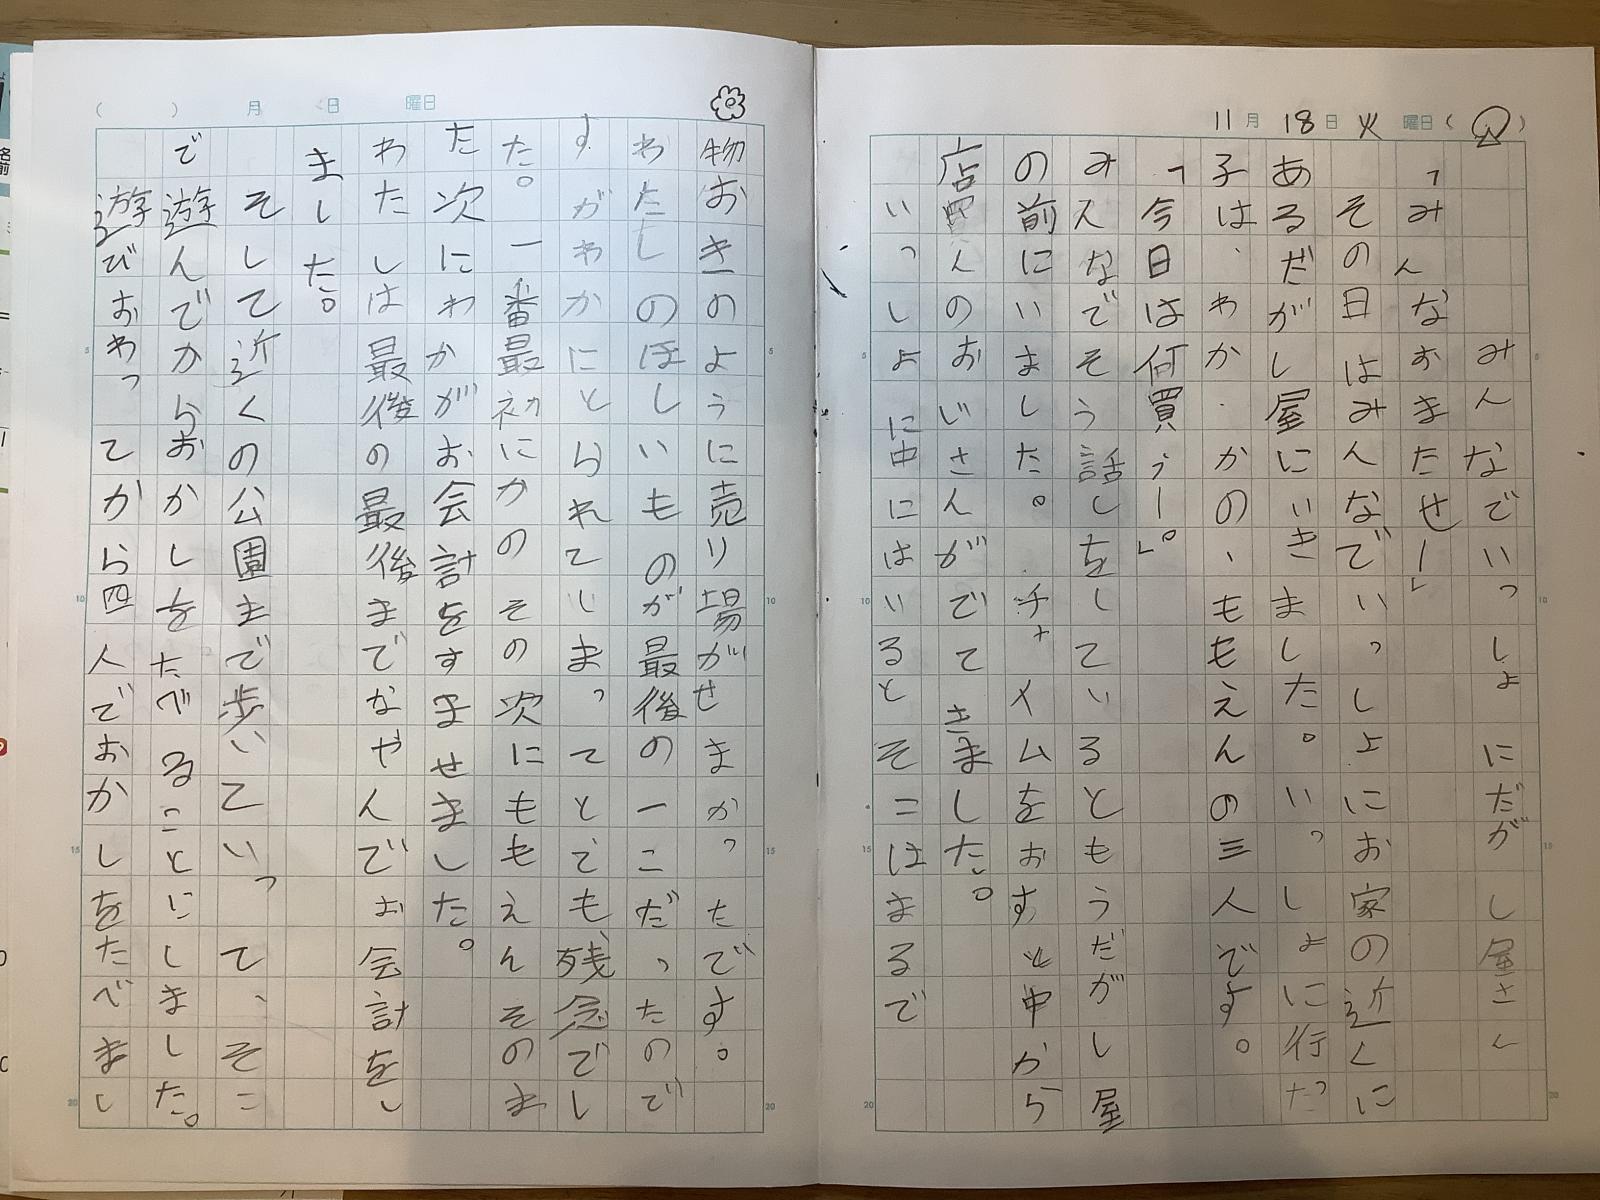 11月18日火曜日( )
みんなでいっしょにだがし屋さん
「みんなおまたせー」
その日はみんなでいっしょにお家の近くに
あるだがし屋にいきました。いっしょに行った
子は、わか、かの、ももえんの三人です。
「今日は何買うー。」
みんなでそう話しをしているともうだがし屋
の前にいました。チャイムをおすと中から
店員んのおじさんがでてきました。
いっしょに中にはいるとそこはまるで
( )月 日 曜日
物おきのように売り場がせまかったです。
わたしのほしいものが最後の一こだったので
すがわかにとられてしまってとても残念でし
た。一番最初にかのその次にももえんそのま
た次にわかがお会計をすませました。
わたしは最後の最後までなやんでお会計をし
ました。
そして近くの公園まで歩いていって、そこ
で遊んでからおかしをたべることにしました。
遊びおわってから四人でおかしをたべまし
5
10
15
20
5
10
15
20
名前